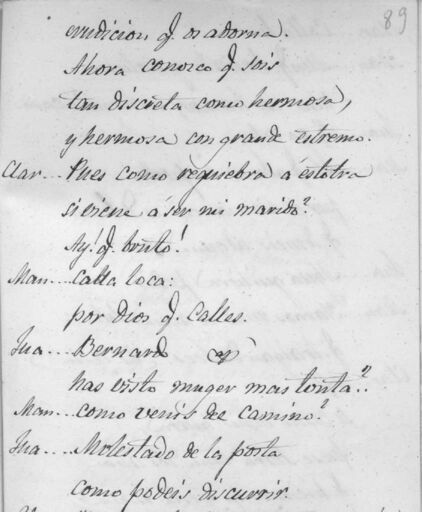 89
erudicion q. os adorna.
Ahora conozco q. sois
tan discreta como hermosa,
y hermosa con grande estremo.
Clar... Pues como requiebra á estotra
si viene á ser mi marido?
Ay! q. bruto!
Man... Calla loca:
por Dios q. calles.
Jua... Bernardo
has visto muger mas tonta?..
Man... Como venis de camino?
Jua... Molestado de la posta
como podeis discurrir.